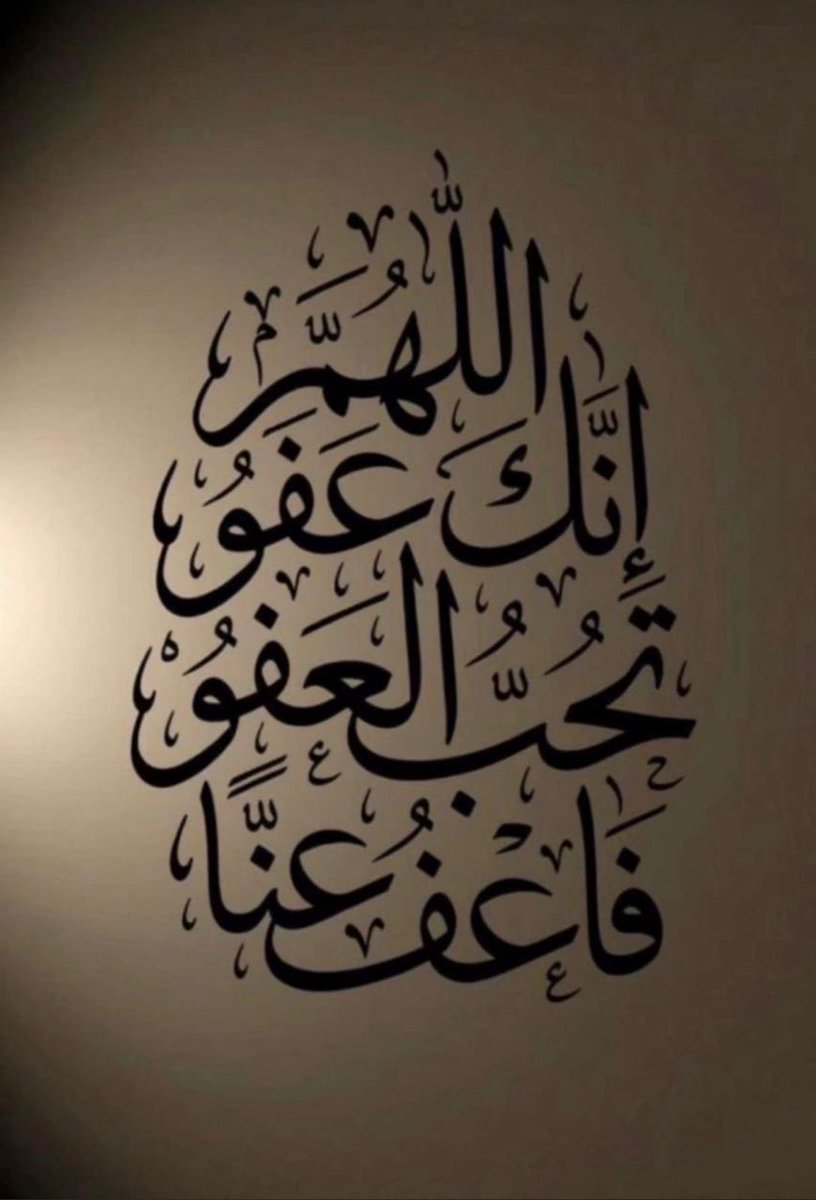 اللَّهُمَّ
إِنَّكَ عَفُوُ
تُحُبُّ الْعَفْوُ
فَاعْفُ عَنَّا